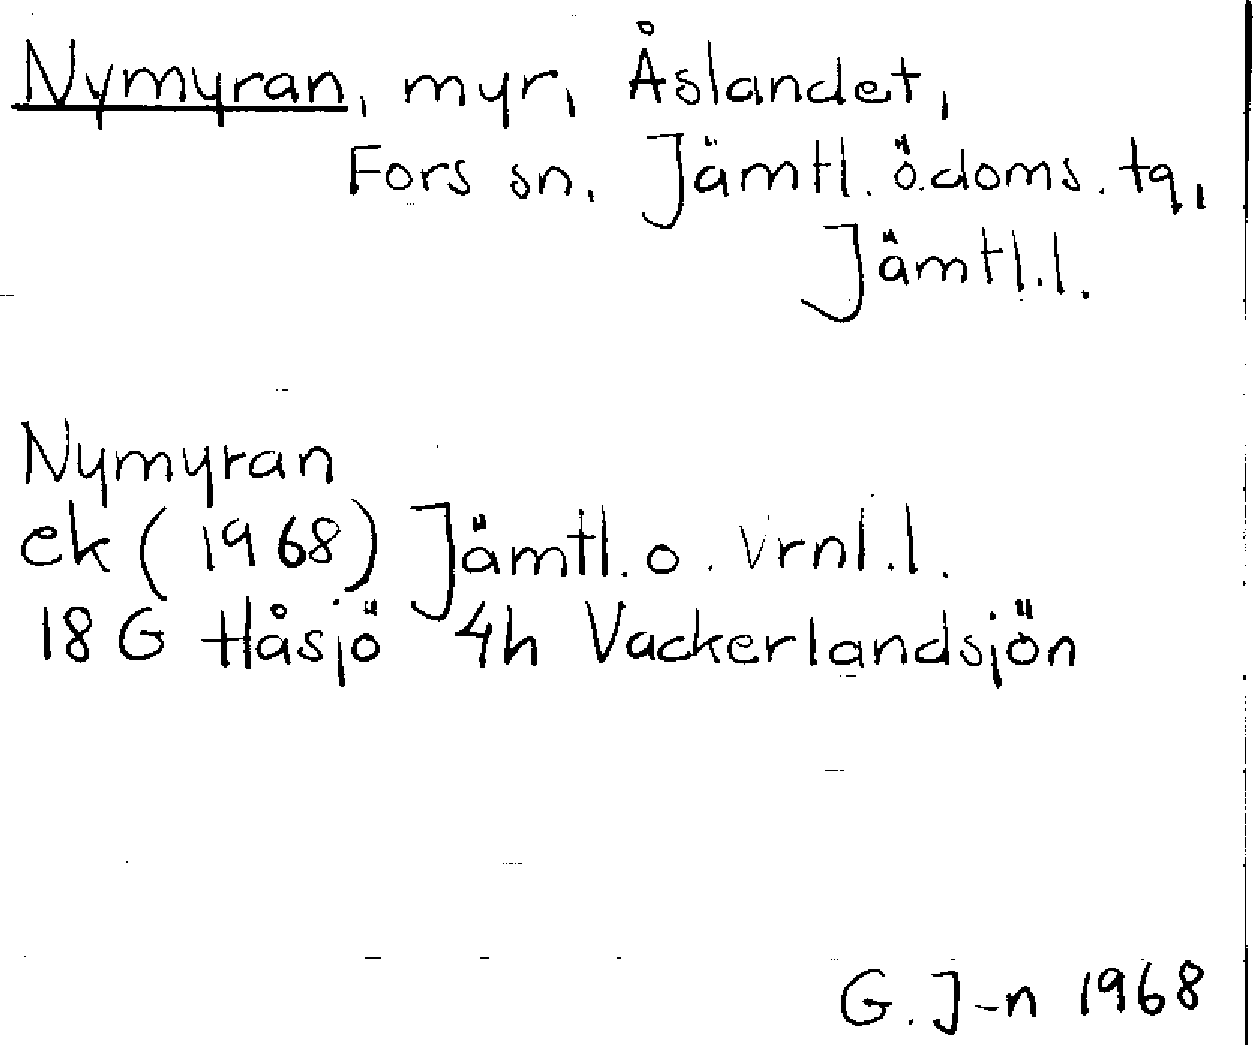 Nymyran, myr, Åslandet,
Fors sn, Jämtl. ö. doms. tq,
Jämtl.l.
Nymyran
ek (1968) Jämtl. o. Vrnl.l.
18 G Håsjö 4h Vackerlandsjön
G. J-n 1968